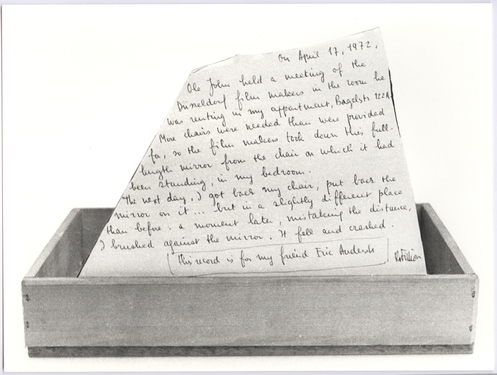 On April 17, 1972,
Ole John held a meeting of the
Düsseldorf film makers in the room he
was renting in my appartment, Bagelstr. 122A.
More chairs were needed than were provided
for, so the film makers took down the full-
length mirror from the chair on which it had
been standing, in my bedroom.
The next day, I got back my chair, put back the
mirror on it ... but in a slightly different place
than before. a moment later, mistaking the distance,
I brushed against the mirror. It fell and crashed.
This record is for my friend Eric Andersen
R. Filliou